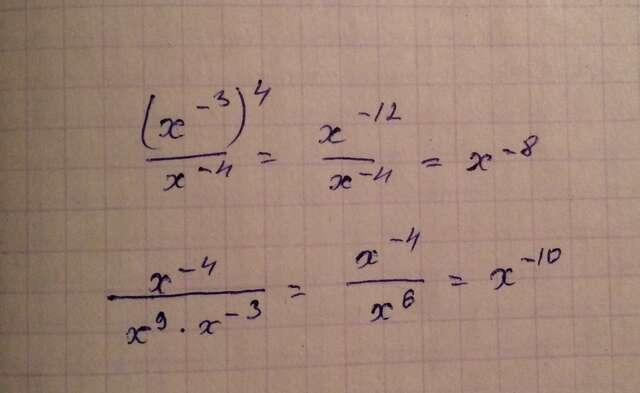 (x⁻³)⁴ / x⁻⁴ = x⁻¹² / x⁻⁴ = x⁻⁸
x⁻⁴ / x⁹ · x⁻³ = x⁻⁴ / x⁶ = x⁻¹⁰